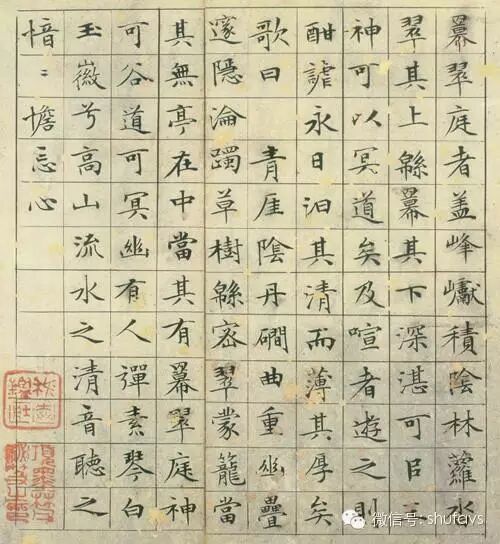 羃翠庭者蓋峰巘積陰林蘿水
翠其上緜羃其下深湛可㠯
神可以冥道矣及喧者遊之則
酣謔永日汨其清而薄其厚矣
歌曰 青崖陰丹磵曲重幽疊
邃隱淪躅草樹緜密翠蒙籠當
其無亭在中當其有羃翠庭神
可谷道可冥幽有人彈素琴白
玉徽兮高山流水之清音聽之
愔〻憺忘心
微信号: shufavs